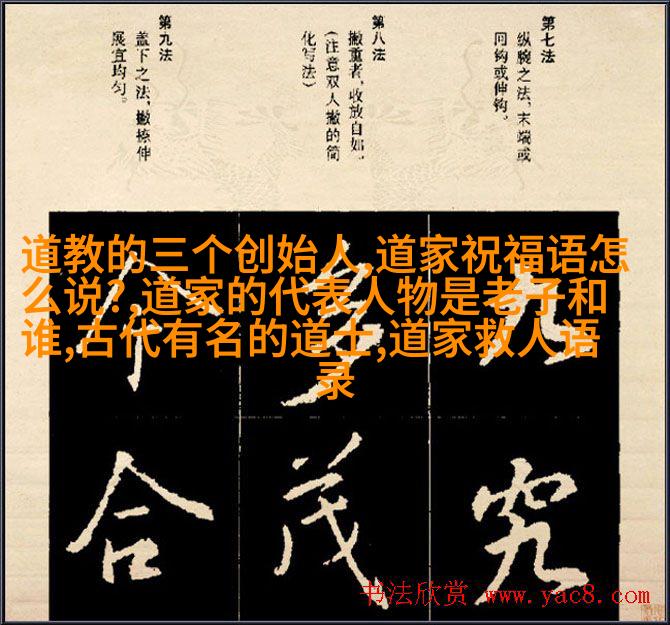 第七法
纵腕之法,末端或
回钩或伸钩。
第八法
撇重者,收放自如。
(注意双人撇的简
化写法)
第九法
盖下之法,撇捺伸
展宜均匀。
道教的三个创始人,道家祝福语怎
么说?,道家的代表人物是老子和
谁,古代有名的道士,道家救人语
录
究
茂
合
书法欣赏 www.yac8.com